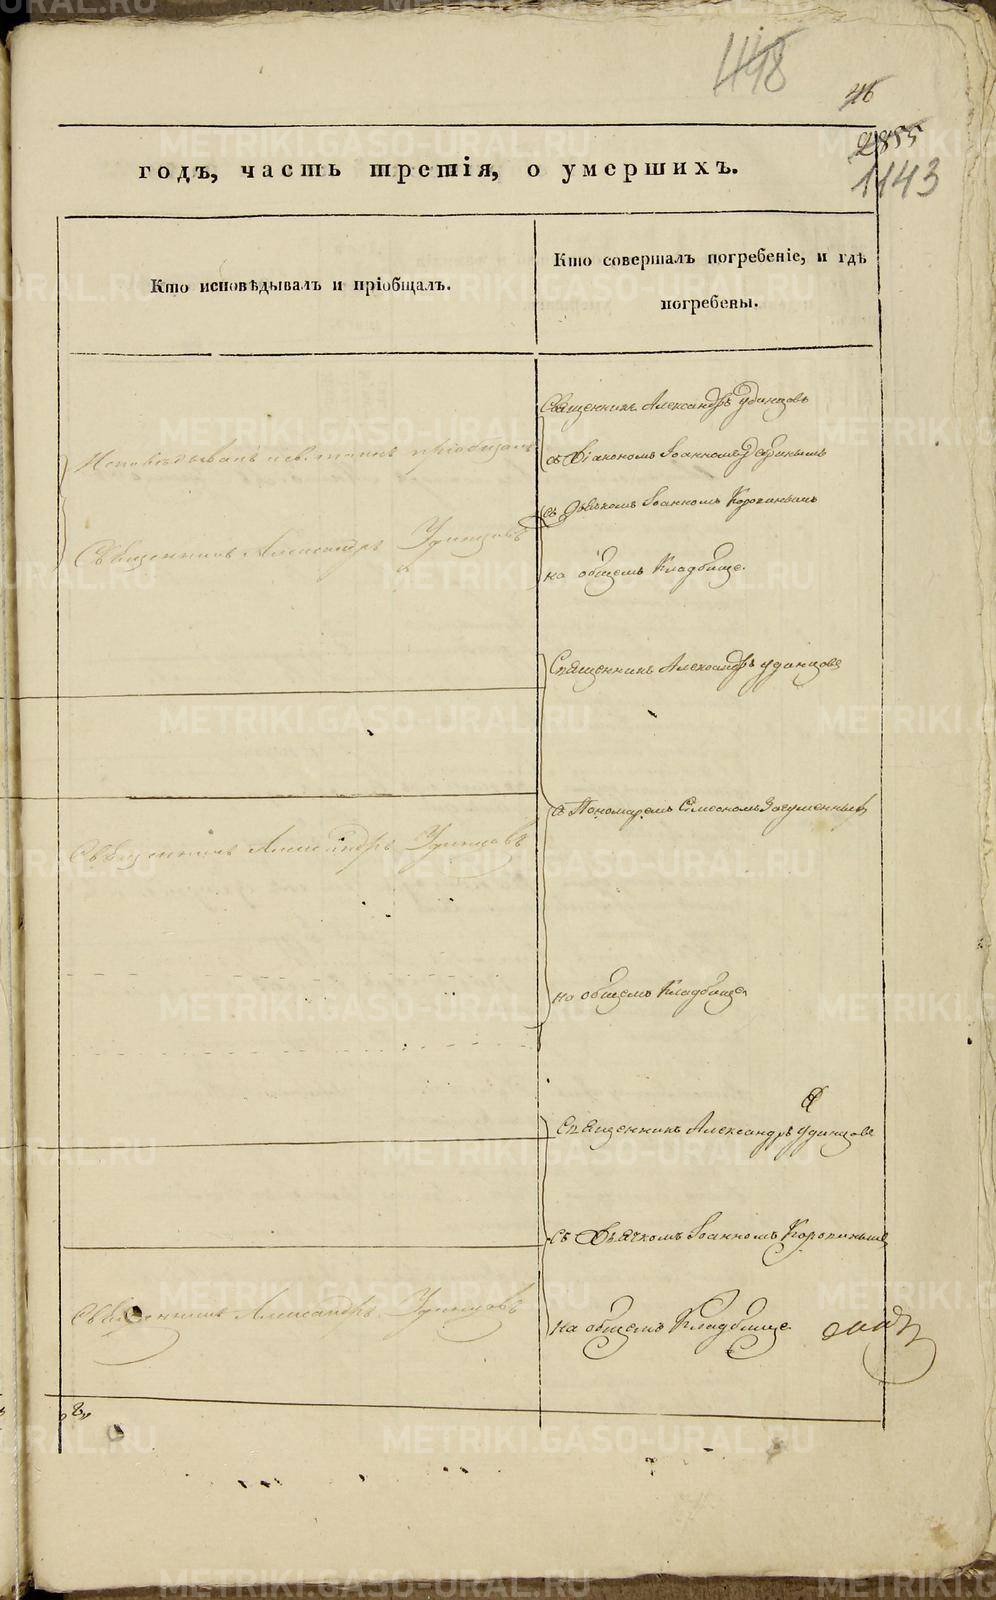 448
46
2855
1143
годъ, часть третія, о умершихъ.
Кто исповѣдывалъ и пріобщалъ.
Кто совершалъ погребеніе, и гдѣ
погребены.
Исповѣдывалъ и св. таинъ пріобщалъ
Священникъ Александръ Удинцовъ
Священникъ Александръ Удинцовъ
съ Діакономъ Іоанномъ
съ Дьячкомъ Іоанномъ Коропинымъ
на общемъ Кладбище.
Священникъ Александръ Удинцовъ
съ Пономаремъ Симеономъ Загуменнымъ
на общемъ Кладбище
Священникъ Александръ Удинцовъ
Священникъ Александръ Удинцовъ
съ Дьячкомъ Іоанномъ Коропинымъ
на общемъ Кладбище
Священникъ Александръ Удинцовъ
METRIKI.GASO-URAL.RU